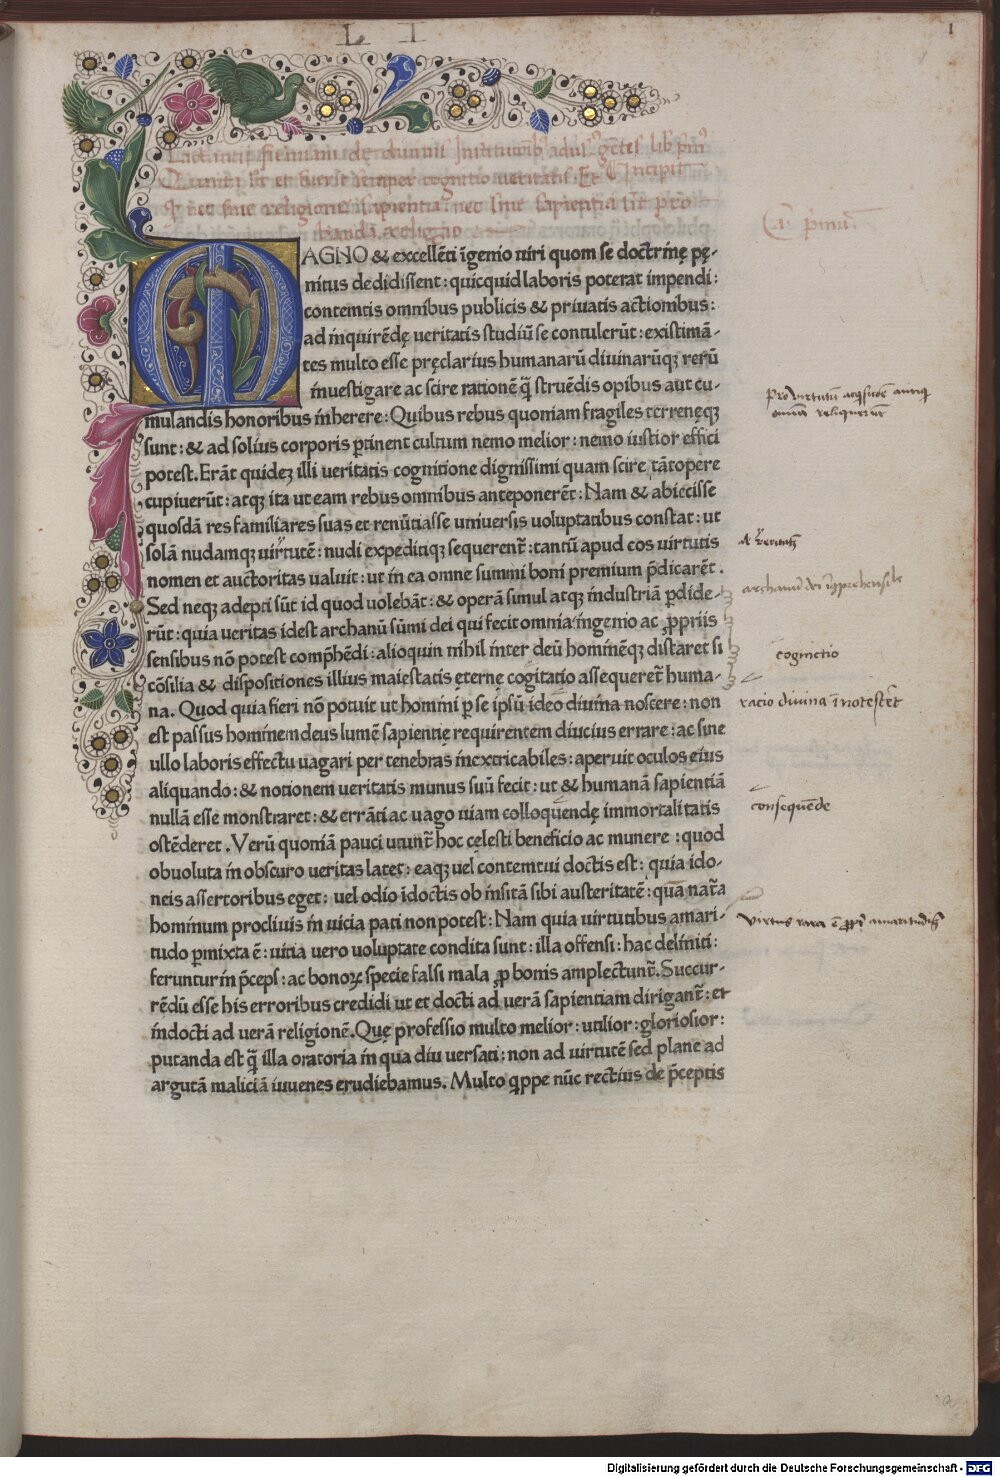 L I
1
Lactantii firmiani de diuinis Institutiōib⁹ aduſ⁹ gētes lib⁹ pm⁹
Quanti ſit et fuerit semper cognitio veritatis. Et Incipit
q̨ nec ſine religione ſapientia: nec ſine ſapientia ſit pro
banda religio
Ca. primū.
MAGNO & excellēti īgenio uiri quom ſe doctrinę pę-
nitus dedidiſſent: quicquid laboris poterat impendi:
contemtis omnibus publicis & priuatis actionibus:
ad inquirēdę ueritatis ſtudiū ſe contulerūt: existimā-
tes multo eſſe pręclarius humanarū diuinarūqȝ rerū
inueſtigare ac ſcire rationē q̄ ſtruēdis opibus aut cu-
mulandis honoribus inherere: Quibus rebus quoniam fragiles terrenęqȝ
ſunt: & ad ſolius corporis ꝑtinent cultum nemo melior: nemo iuſtior effici
poteſt. Erāt quideȝ illi ueritatis cognitione digniſſimi quam ſcire tātopere
cupiuerūt: atqȝ ita ut eam rebus omnibus anteponerēt: Nam & abieciſſe
quoſdā res familiares ſuas et renūtiaſſe uniuerſis uoluptatibus conſtat: ut
ſolā nudamqȝ uirtutē: nudi expeditiqȝ ſequerent᷑: tantū apud eos uirtutis
nomen et auctoritas ualuit: ut in ea omne ſummi boni premium p̄dicarēt.
Sed neqȝ adepti ſūt id quod uolebāt: & operā ſimul atqȝ induſtriā ꝑdide-
rūt: quia ueritas ideſt archanū ſūmi dei qui fecit omnia ingenio ac ꝓpriis
ſenſibus nō poteſt comp̄hēdi: alioquin nihil inter deū hominēqȝ diſtaret ſi
cōſilia & diſpoſitiones illius maieſtatis ęternę cogitatio aſſequeret᷑ huma-
na. Quod quia fieri nō potuit ut homini ꝑ ſe ipſū ideo diuina noſcere: non
eſt paſſus hominem deus lumē ſapientię requirentem diucius errare: ac ſine
ullo laboris effectu uagari per tenebras inextricabiles: aperuit oculos eius
aliquando: & notionem ueritatis munus ſuū fecit: ut & humanā ſapientiā
nullā eſſe monſtraret: & errāti ac uago uiam colloquendę immortalitatis
oſtēderet. Verū quoniā pauci utunt᷑ hoc cęleſti beneficio ac munere: quod
obuoluta in obſcuro ueritas latet: eaqȝ uel contemtui doctis eſt: quia ido-
neis aſſertoribus eget: uel odio īdoctis ob inſitā ſibi auſteritatē: quā nat᷑a
hominum procliuis in uicia pati non poteſt: Nam quia uirtutibus amari-
tudo ꝑmixta ē: uitia uero uoluptate condita ſunt: illa offenſi: hac deliniti:
feruntur in p̄ceps: ac bonoꝝ ſpecie falſi mala ꝓ bonis amplectunt᷑. Succur-
rēdū eſſe his erroribus credidi ut et docti ad uerā ſapientiam dirigant᷑: et
indocti ad uerā religionē. Quę profeſſio multo melior: utilior: glorioſior:
putanda eſt q̄ illa oratoria in qua diu uerſati: non ad uirtutē ſed plane ad
argutā maliciā iuuenes erudiebamus. Multo quippe nūc rectius de p̄ceptis
omnia reliquerunt
archanū dei īcōprehenſibile
cognitio
racio diuina īnoteſceret
conſequēde
Virtus rara ē ꝓpt᷑ amaritudinē
Digitalisierung gefördert durch die Deutsche Forschungsgemeinschaft - DFG